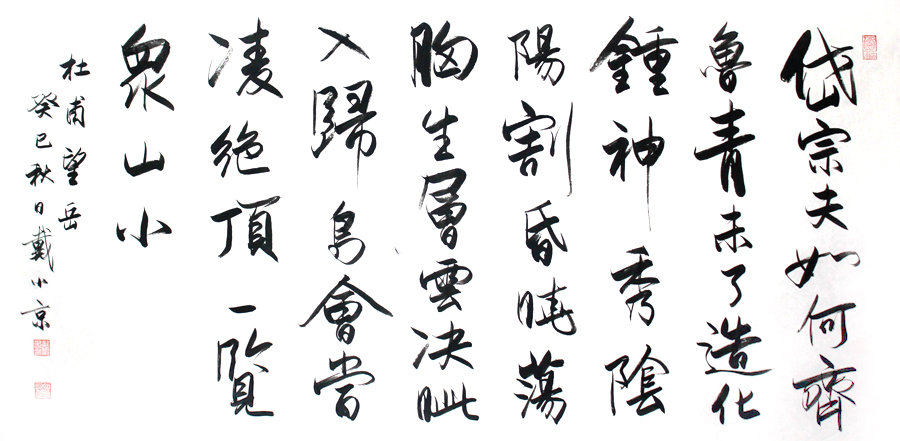 岱宗夫如何齊
魯青未了造化
鍾神秀陰
陽割昏曉蕩
胸生層雲決眦
入歸鳥會當
凌絕頂一覽
眾山小
杜甫望岳
癸巳秋日戴小京